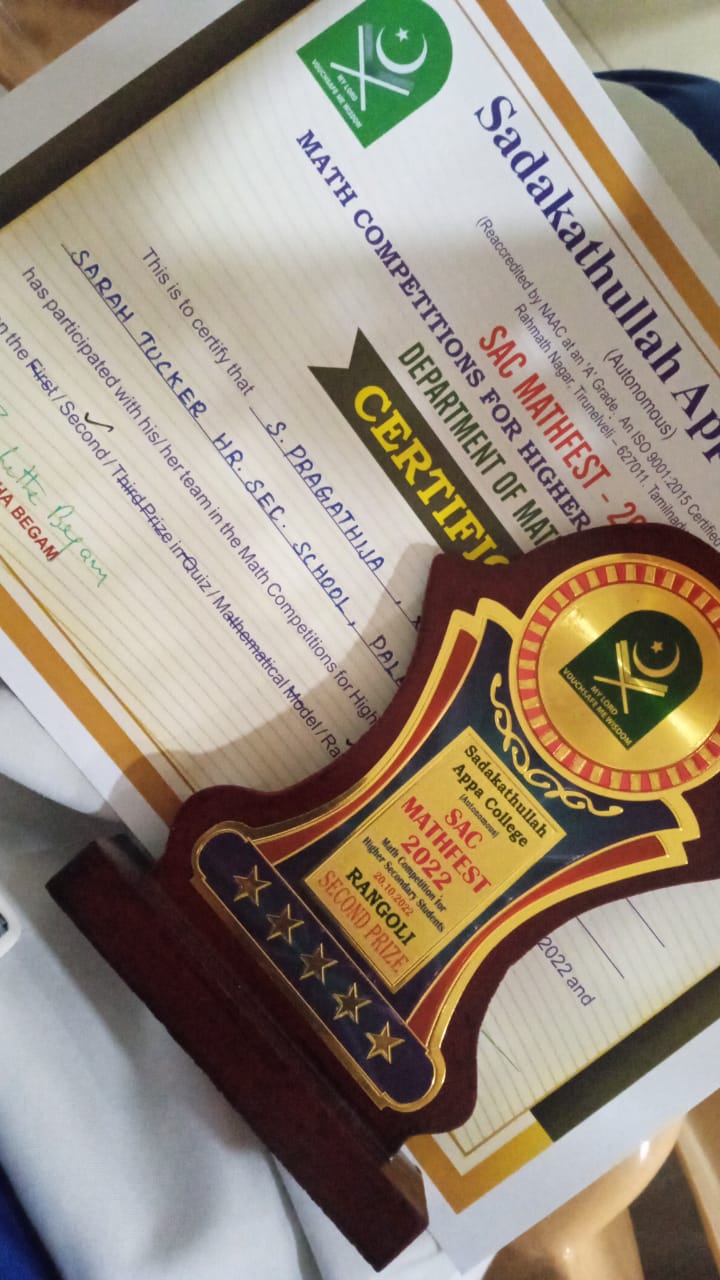 Sadakathullah App
(Autonomous)
(Reaccredited by NAAC at an 'A' Grade. An ISO 9001:2015 Certified
Rahmath Nagar, Tirunelveli – 627011. Tamilnadu
SAC MATHFEST - 2
MATH COMPETITIONS FOR HIGHER
DEPARTMENT OF MAT
CERTIFIC
This is to certify that S. PRAGATHIJA ,
SARAH TUCKER HR. SEC. SCHOOL, PALA
2022 and
has participated with his/ her team in the Math Competitions for High
the First / Second / Third Prize in Quiz / Mathematical Model / Ra
Begam
HA BEGAM
MY LORD
VOUCHSAFE ME WISDOM
MY LORD
VOUCHSAFE ME WISDOM
Sadakathullah
Appa College
(Autonomous)
SAC
MATHFEST
2022
Math Competition for
Higher Secondary Students
20.10.2022
RANGOLI
SECOND PRIZE